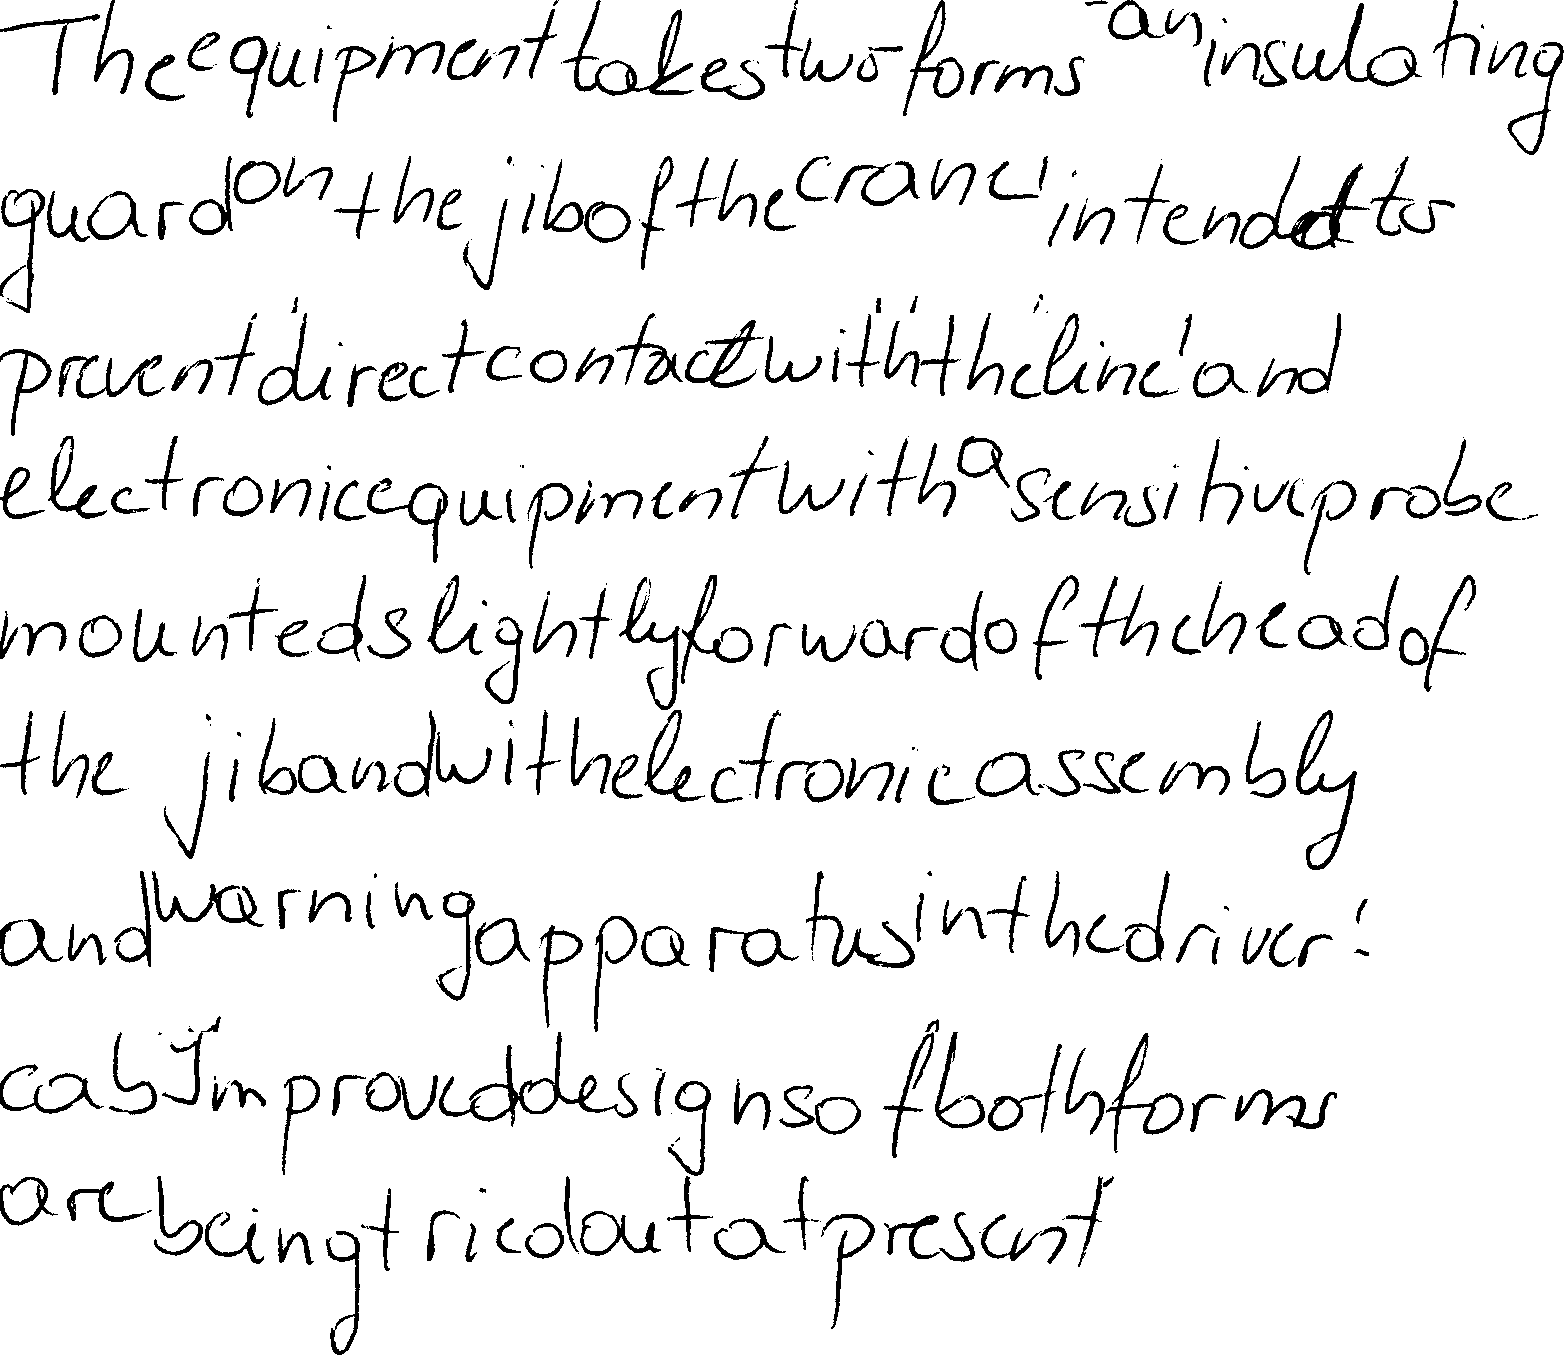 The equipment takes two forms - an insulating
guard on the jib of the crane, intended to
prevent direct contact with the line, and
electronic equipment with a sensitive probe
mounted slightly forward of the head of
the jib and with electronic assembly
and warning apparatus in the driver's
cab. Improved designs of both forms
are being tried out at present